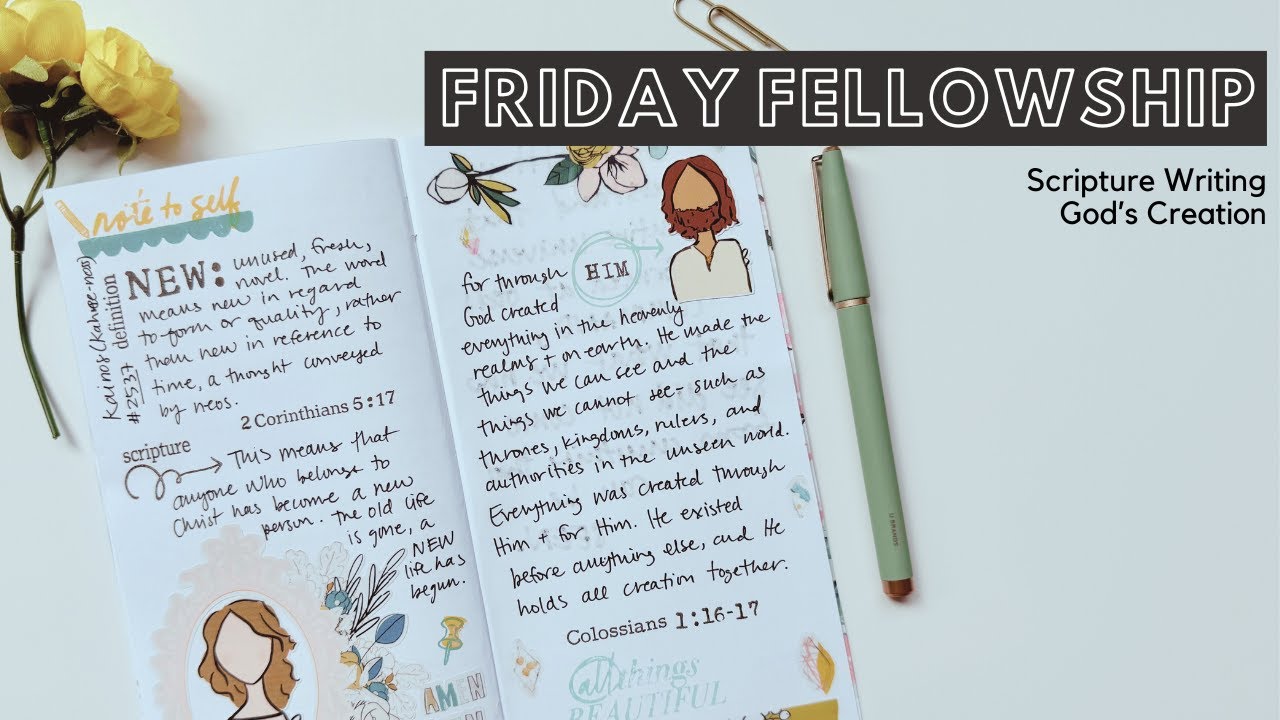 FRIDAY FELLOWSHIP
Scripture Writing
God's Creation
note to self
NEW: unused, fresh,
novel. The word
means new in regard
to form or quality, rather
than new in reference to
time, a thought conveyed
by neos.
Kainos (Kahee-nos)
#2537 definition
2 Corinthians 5:17
scripture
This means that
anyone who belongs to
Christ has become a new
person. The old life
is gone, a
NEW
life has
begun.
AMEN
for through HIM
God created
everything in the heavenly
realms + on earth. He made the
things we can see and the
things we cannot see - such as
thrones, kingdoms, rulers, and
authorities in the unseen world.
Everything was created through
Him + for Him. He existed
before anything else, and He
holds all creation together.
Colossians 1:16-17
all things
BEAUTIFUL
BRANDS